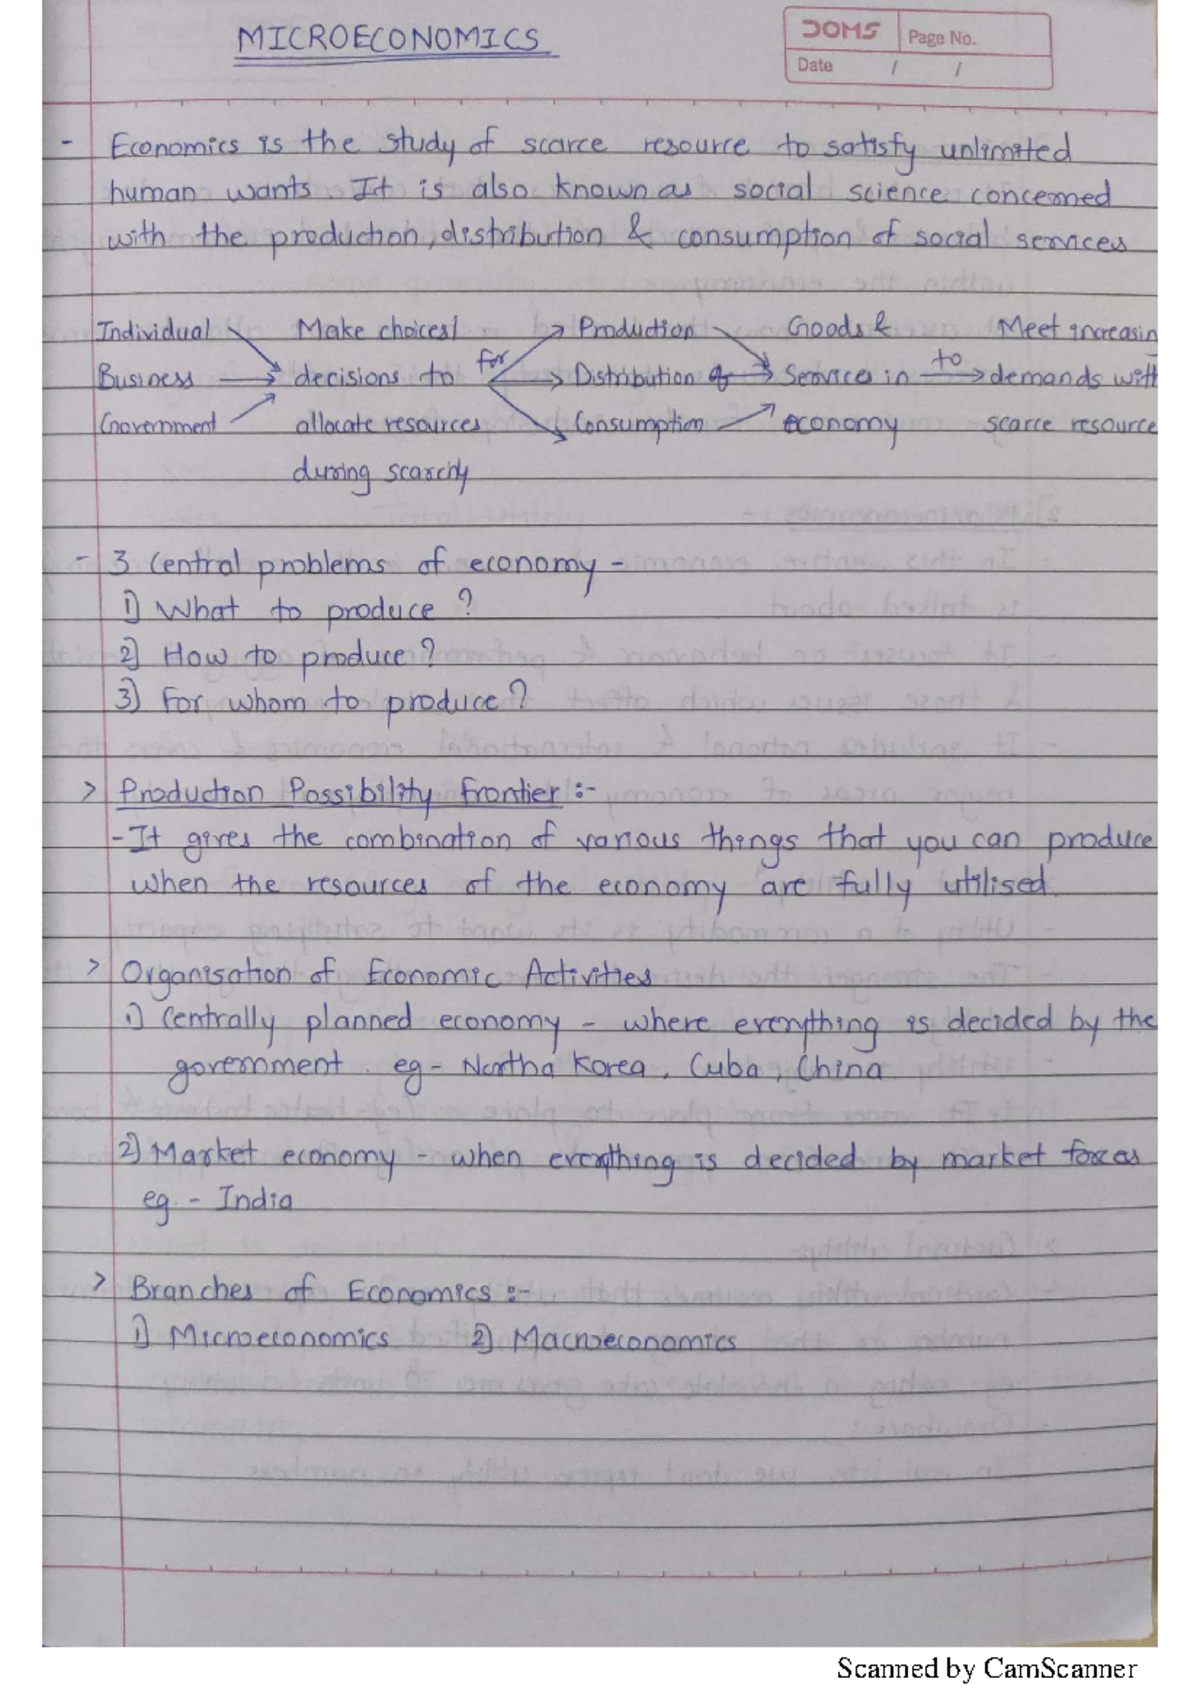 MICROECONOMICS
DOMS Page No.
Date / /
- Economics is the study of scarce resource to satisfy unlimited
human wants. It is also known as social science concerned
with the production, distribution & consumption of social services
Individual Make choices/ Production Goods & Meet increasin
Business decisions to for Distribution of Services in to demands with
Government allocate resources Consumption economy scarce resource
during scarcity
- 3 Central problems of economy -
1) What to produce ?
2) How to produce?
3) For whom to produce?
> Production Possibility Frontier :-
- It gives the combination of various things that you can produce
when the resources of the economy are fully utilised.
> Organisation of Economic Activities
1) Centrally planned economy - where everything is decided by the
government. eg - Northa Korea, Cuba, China
2) Market economy - when everything is decided by market forces
eg. - India
> Branches of Economics :-
1) Microeconomics 2) Macroeconomics
Scanned by CamScanner